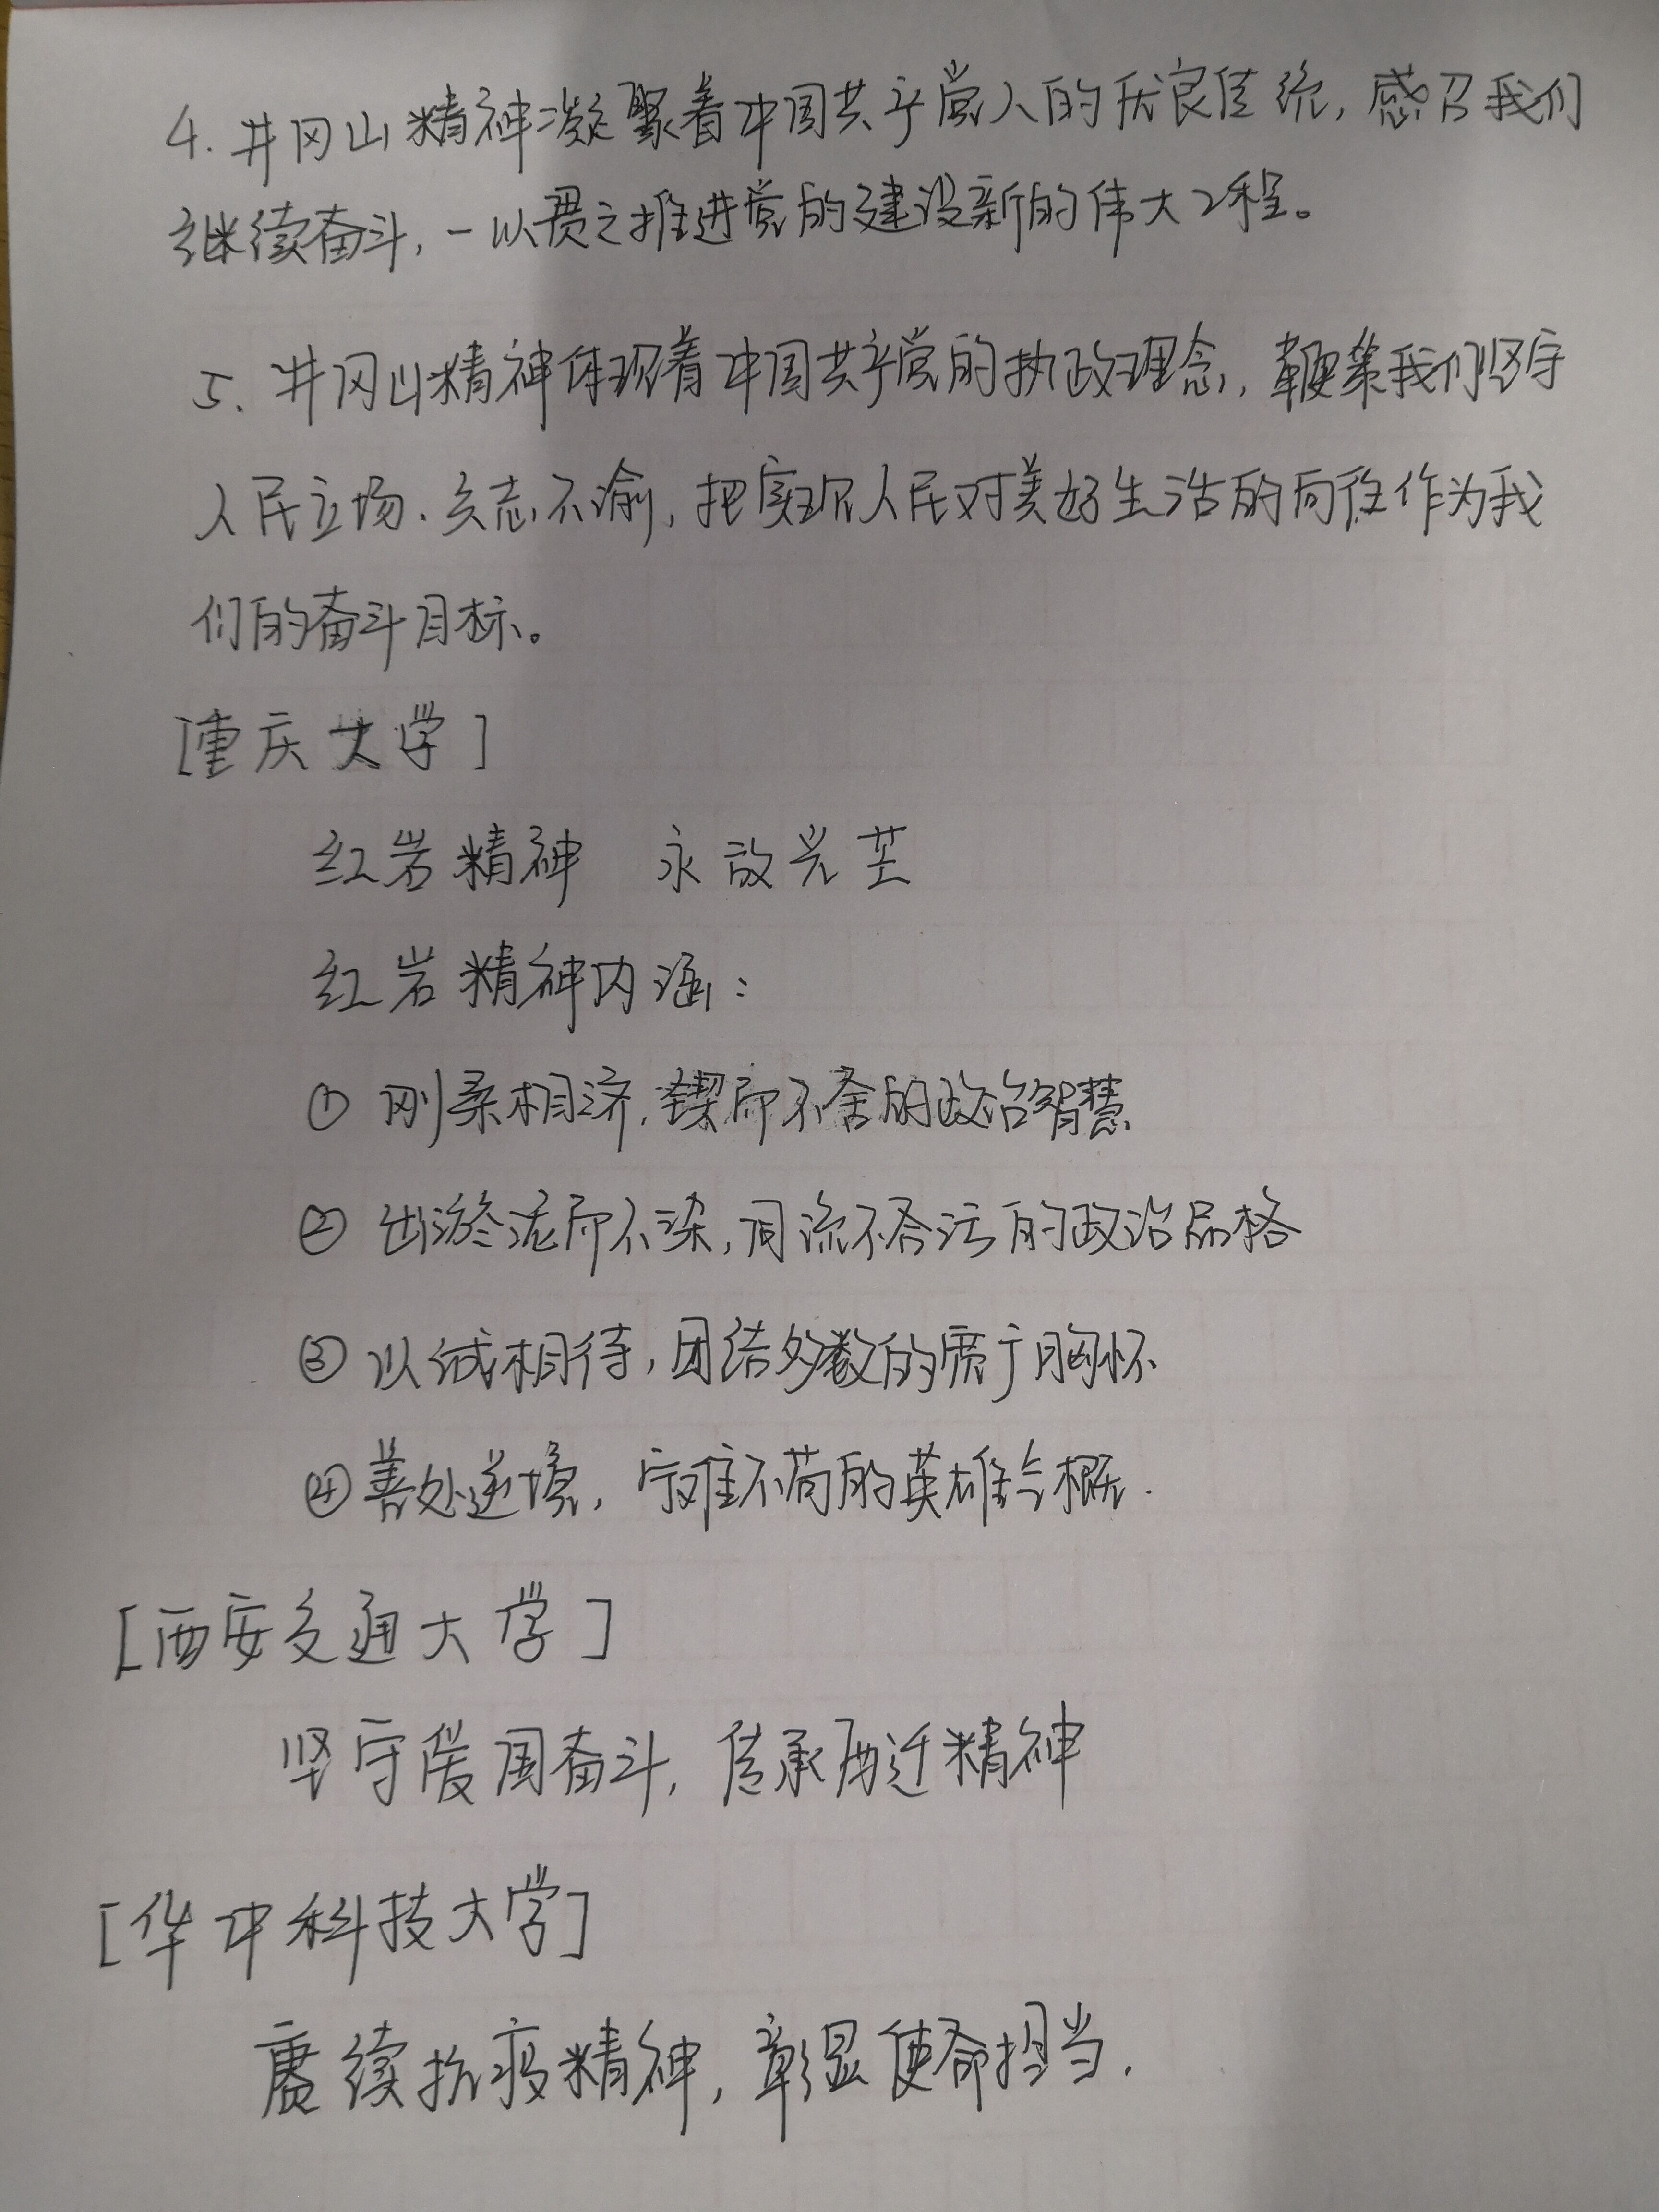 4. 井冈山精神凝聚着中国共产党人的优良传统，感召我们
继续奋斗，一以贯之推进党的建设新的伟大工程。
5. 井冈山精神体现着中国共产党的执政理念，鞭策我们坚守
人民立场、矢志不渝，把实现人民对美好生活的向往作为我
们的奋斗目标。
[重庆大学]
红岩精神 永放光芒
红岩精神内涵：
① 刚柔相济，锲而不舍的政治智慧
② 出淤泥而不染，同流不合污的政治品格
③ 以诚相待，团结多数的宽广胸怀
④ 善处逆境，宁难不苟的英雄气概.
[西安交通大学]
坚守爱国奋斗，传承西迁精神
[华中科技大学]
赓续抗疫精神，彰显使命担当.